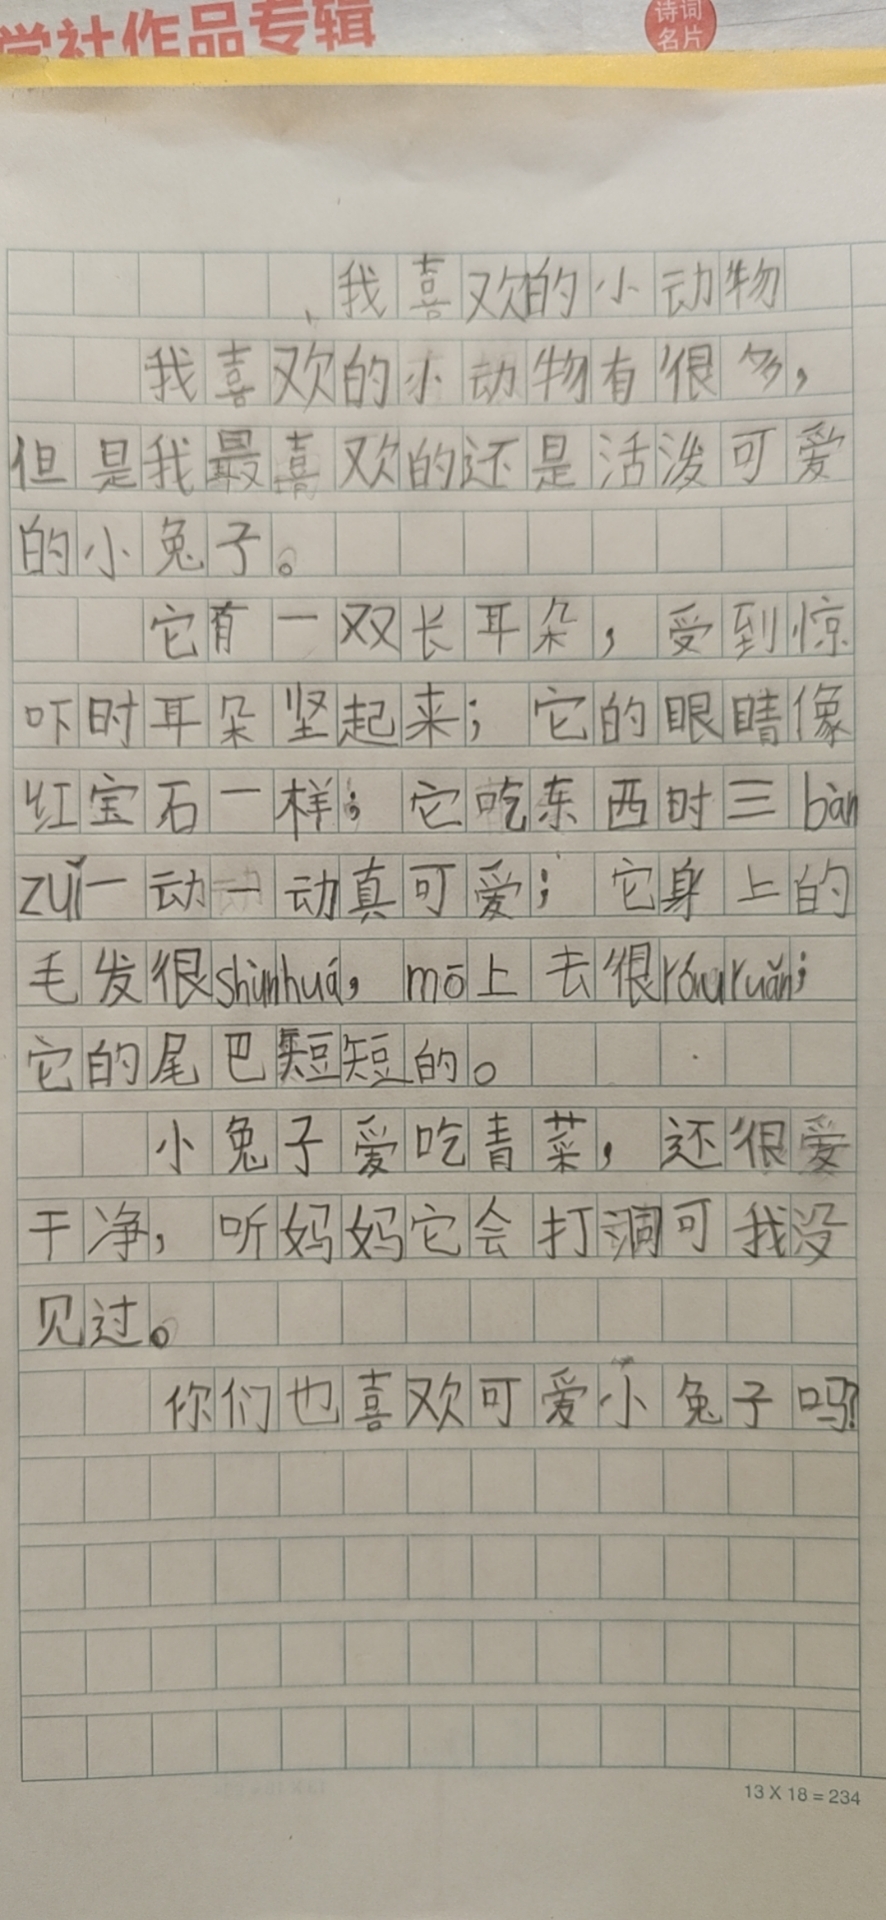 学社作品专辑
诗词
名片
我喜欢的小动物
我喜欢的小动物有很多，
但是我最喜欢的还是活泼可爱
的小兔子。
它有一双长耳朵，受到惊
吓时耳朵坚起来；它的眼睛像
红宝石一样；它吃东西时三bàn
zuǐ一动一动真可爱；它身上的
毛发很shùnhuá，mō上去很róuruǎn；
它的尾巴短短的。
小兔子爱吃青菜，还很爱
干净，听妈妈它会打洞可我没
见过。
你们也喜欢可爱小兔子吗？
13 X 18 = 234